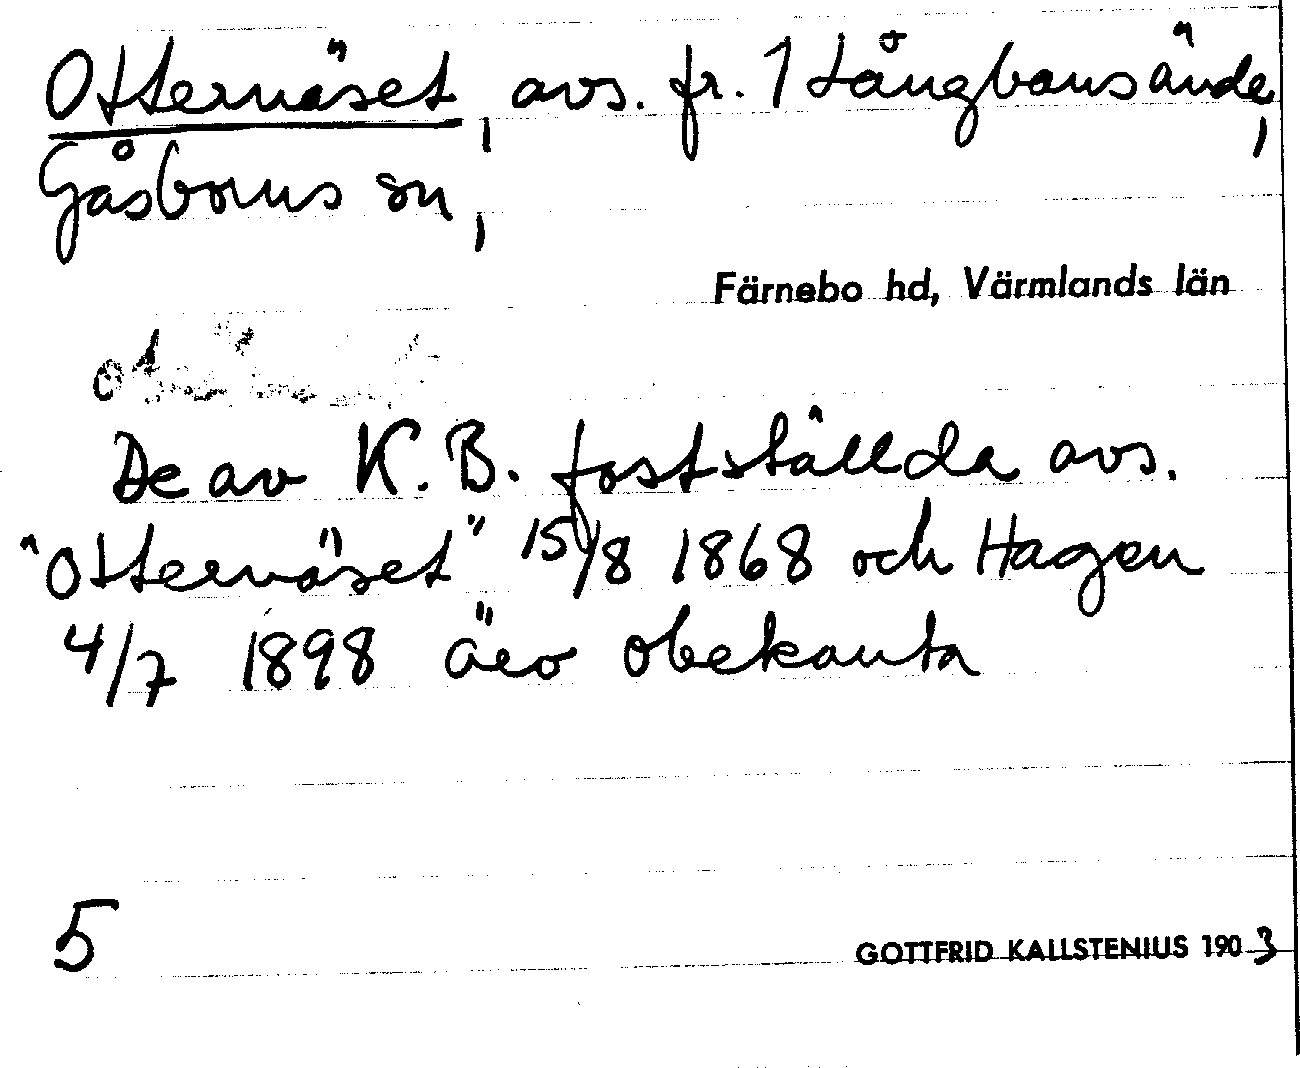 Otternäset, avs. fr. 1 Långbansände,
Gåsborns sn,
Färnebo hd, Värmlands län
De av K.B. fastställda avs.
"Otternäset" 15/8 1868 och Hagen
4/7 1898 äro obekanta
5
GOTTFRID KALLSTENIUS 1903